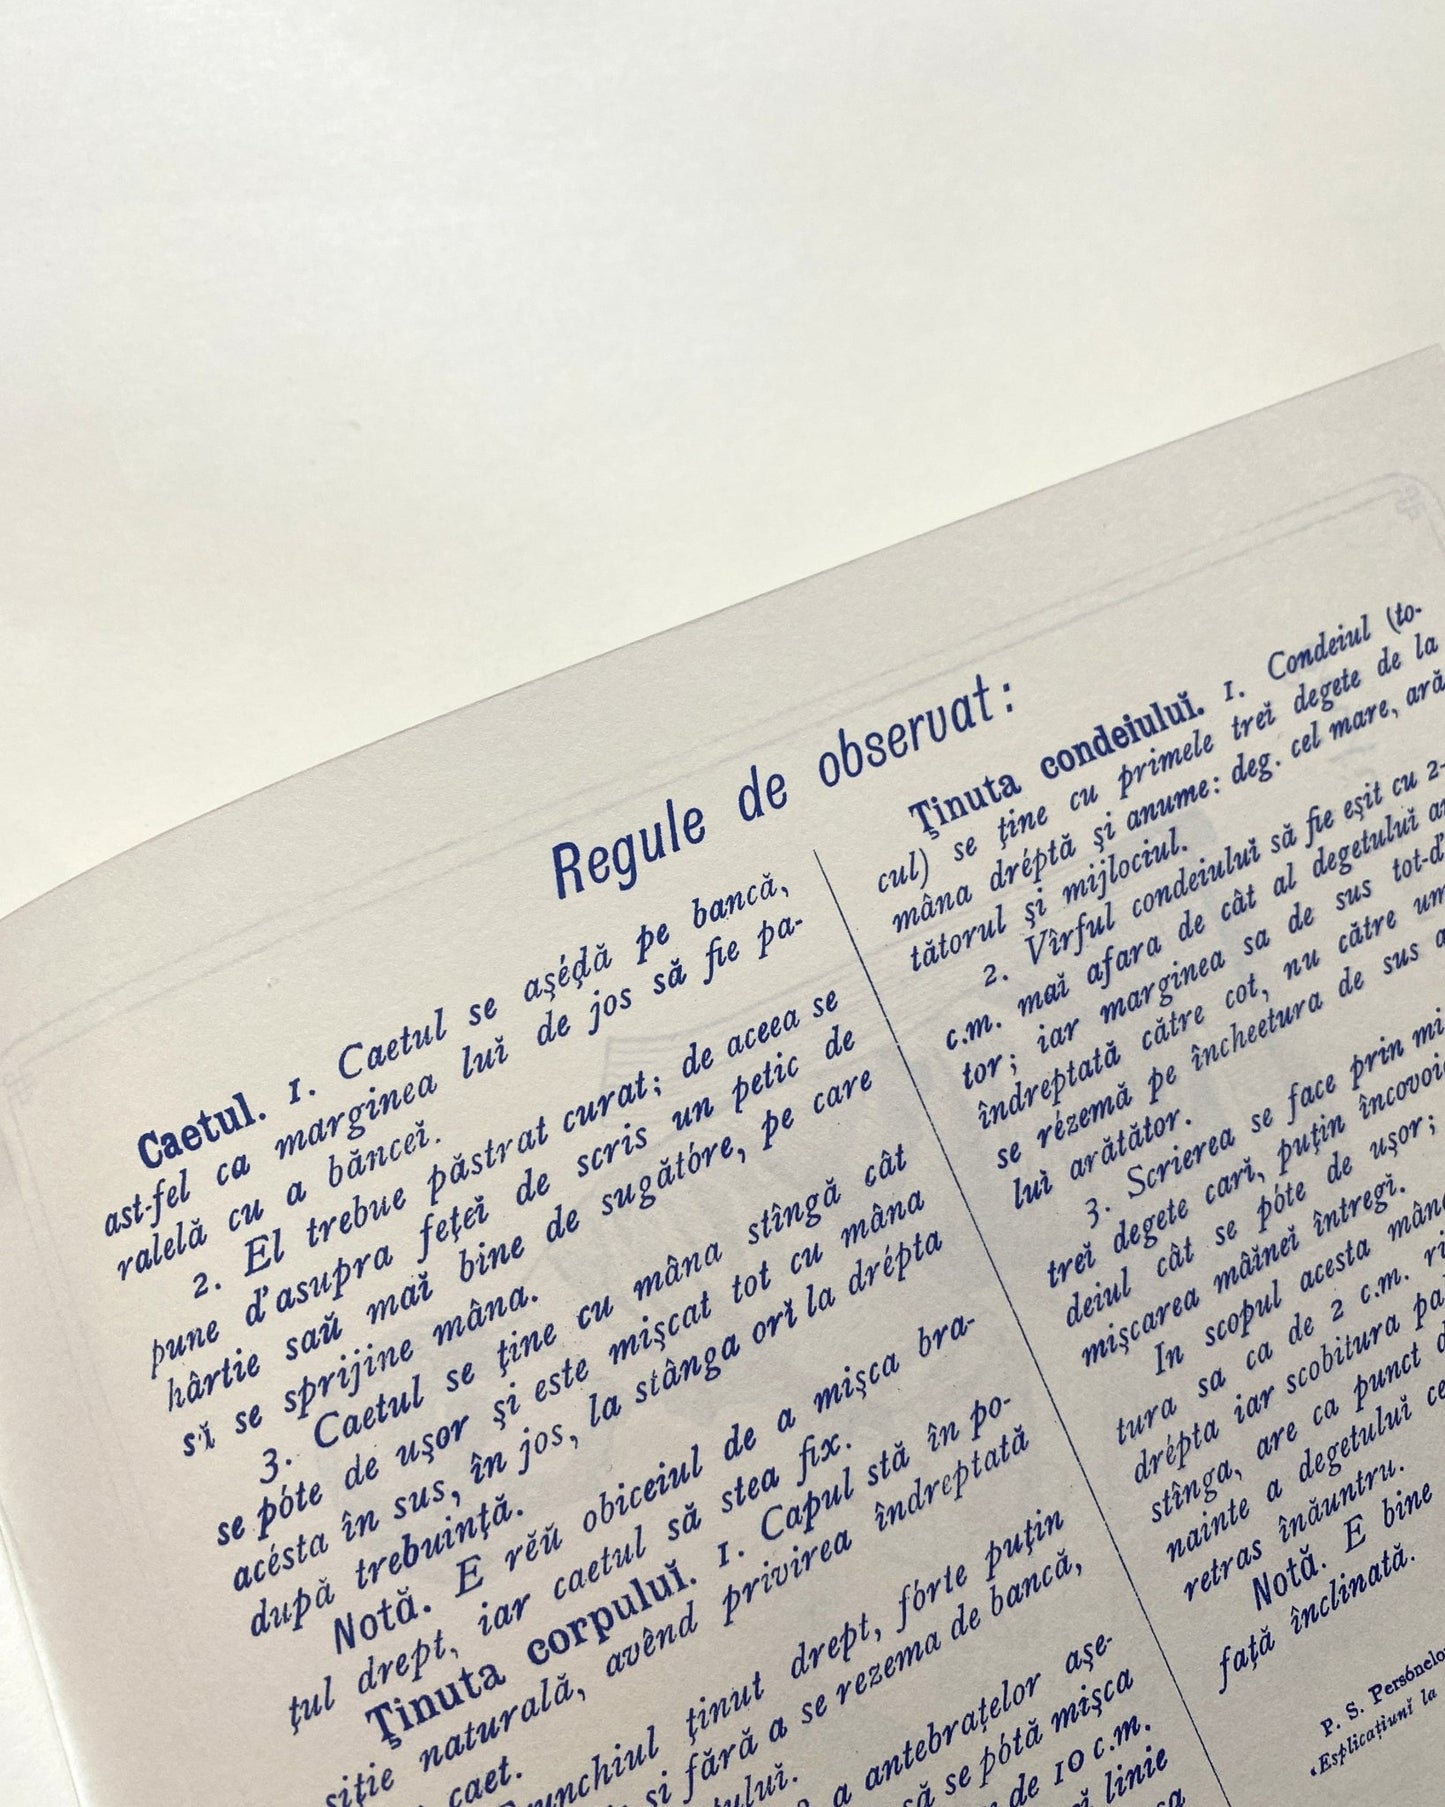 Regule de observat:
Caetul. 1. Caetul se aşéḑă pe bancă,
ast-fel ca marginea luĭ de jos să fie pa-
ralelă cu a bănceĭ.
2. El trebue păstrat curat; de aceea se
pune d'asupra feţeĭ de scris un petic de
hârtie saŭ maĭ bine de sugătóre, pe care
să se sprijine mâna.
3. Caetul se ţine cu mâna stîngă cât
se póte de uşor şi este mişcat tot cu mâna
acésta în sus, în jos, la stânga orĭ la drépta
după trebuinţă.
Notă. E rĕŭ obiceiul de a mişca bra-
ţul drept, iar caetul să stea fix.
Ţinuta corpuluĭ. 1. Capul stă în po-
siţie naturală, avênd privirea îndreptată
caet.
ţinut drept, fórte puţin
şi fără a se rezema de bancă,
a antebraţelor aşe-
să se pótă mişca
de 10 c.m.
linie
Ţinuta condeiuluĭ. 1. Condeiul (to-
cul) se ţine cu primele treĭ degete de la
mâna dréptă şi anume: deg. cel mare, ară
tătorul şi mijlociul.
2. Vîrful condeiuluĭ să fie eşit cu 2-
c.m. maĭ afara de cât al degetuluĭ
tor; iar marginea sa de sus tot-d'
îndreptată către cot, nu către
se rézemă pe încheetura de sus
luĭ arătător.
3. Scrierea se face prin
treĭ degete carĭ, puţin
deiul cât se póte de uşor;
mişcarea mâineĭ întregĭ.
In scopul acesta
tura sa ca de 2 c.m.
drépta iar scobitura
stînga, are ca punct
nainte a degetuluĭ
retras înăuntru.
Notă. E bine
faţă înclinată.
P. S.
«Esplicaţiunĭ la